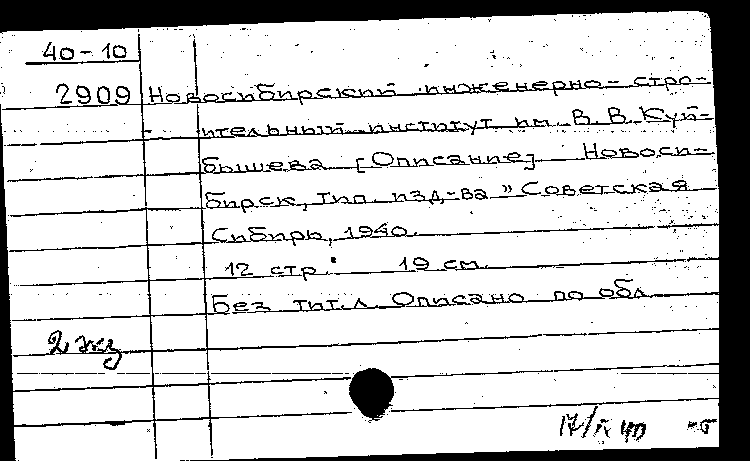 40-10
2909 Новосибирский инженерно-стро-
ительный институт им. В. В. Куй-
бышева [Описание] Новоси-
бирск, тип. изд-ва "Советская
Сибирь, 1940.
12 стр. 19 см.
Без тит. л. Описано по обл.
2 экз
17/IX 40